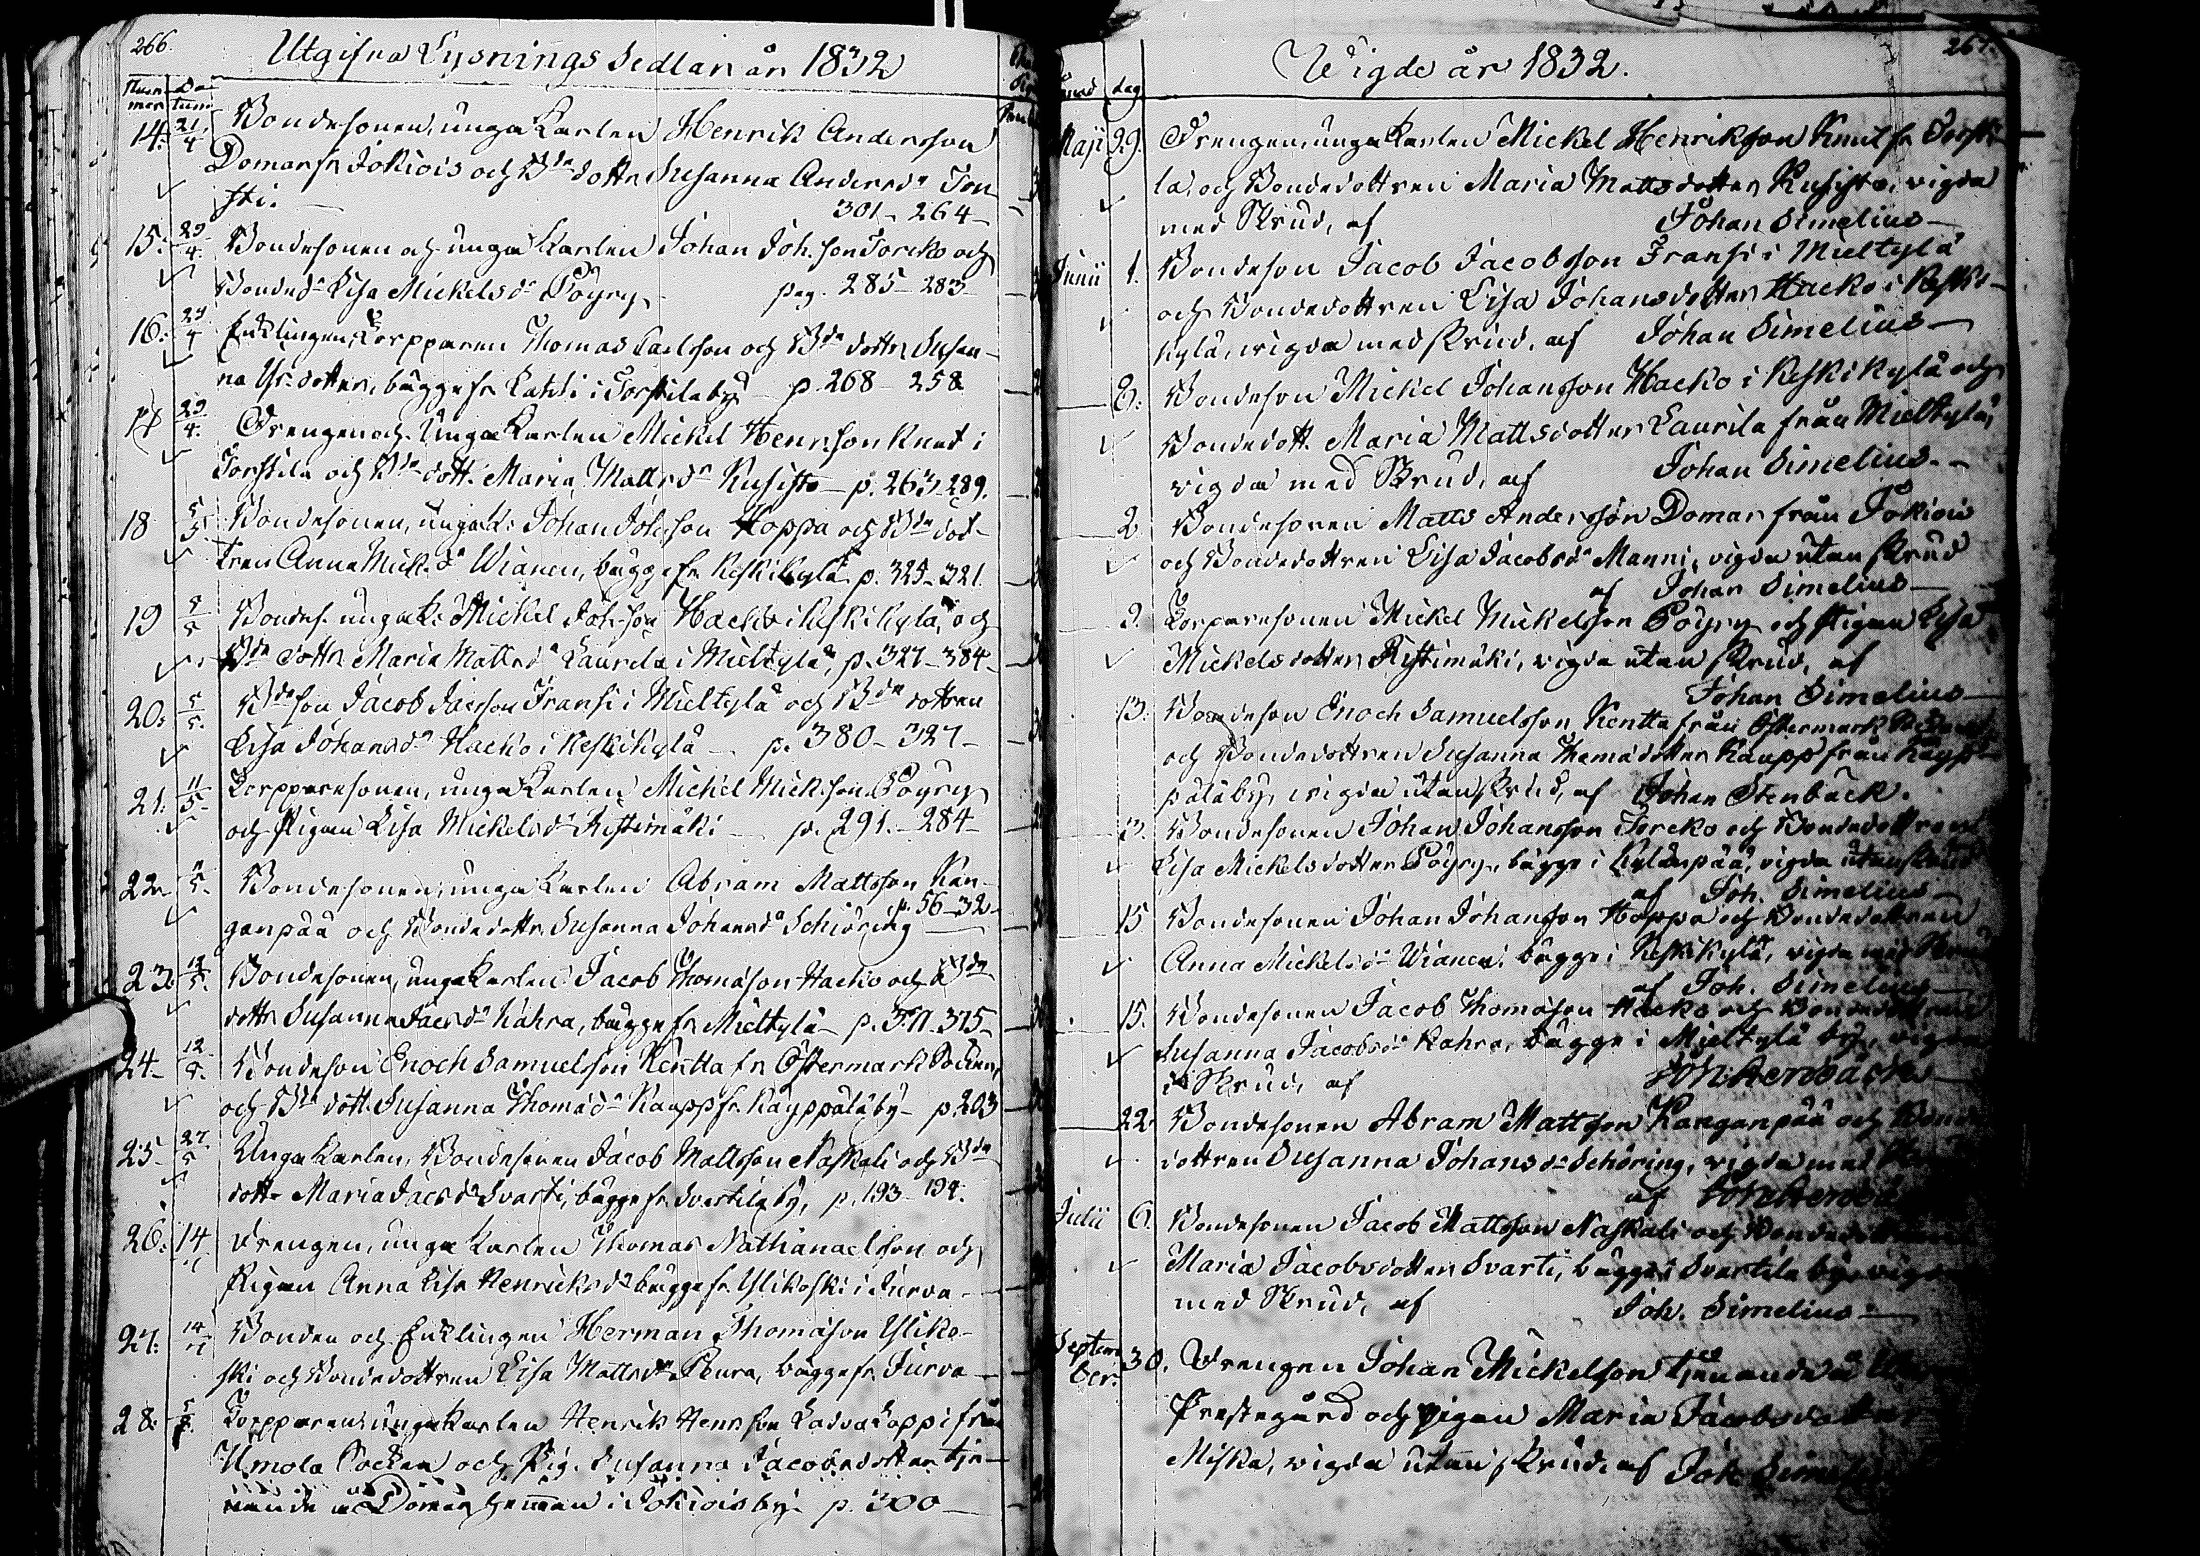 266.
Utgifna Lysnings Sedlar år 1832
Num-
mer
Da-
tum
14. 21/4 Bondesonen, unga Karlen Henrik Andersson
Domar fr Jokiois och Bde dottr Susanna Andersdr Ton
sti. 301 - 264 -
15. 29/4. Bondesonen och unga Karlen Johan Joh. son Torcko och
Bondedr Lisa Mickelsdr Pöyry pag. 285 - 283 -
16. 29/4 Enklingen, Torpparen Thomas Carlsson och Bde dottr Susan-
na dotter, bägge fr Lahti i Torstila by p. 268 - 258
17 29/4. Drengen och Unga Karlen Mickel Henr.son Knut i
Torstila och Bde dott. Maria Mattsdr Kusisto p. 263. 289.
18 5/5 Bondesonen, unga K. Johan Joh.son Hoppa och Bde dot-
tren Anna Mick.dr Wianen, bägge fr Keskikylä p. 325 - 321.
19 5/5 Bondes. unga K. Mickel Joh.son Hacko i Keskikylä, och
Bde dottr Maria Mattsdr Laurila i Mieltylä, p. 327 - 384 -
20. 5/5. Bde son Jacob Jacsson Fransi i Mieltylä och Bde dottren
Lisa Johansdr Hacko i Keskikylä p. 380 - 327 -
21. 11/5 Torpparesonen, unga Karlen Michel Mick.son Pöyry
och Pigan Lisa Mickelsdr Ristimäki p. 291. - 284 -
22. 11/5. Bondesonen, unga Karlen Abram Mattsson Kan-
p. 56 - 32 -
ganpää och Bondedottr Susanna Johansdr Schiöring
23. 12/5. Bondesonen, unga Karlen Jacob Thomasson Hacko och Bde
dottr Susanna Jacsdr Kahra, bägge fr Mieltylä p. 371. 375 -
24. 12/5. Bondeson Enoch Samuelsson Kentta fr Östermark Socken,
och Bde dott. Susanna Thomasdr Kaupp fr Käyppälä by - p. 203
25 - 27/5 Unga Karlen, Bondesonen Jacob Mattsson Naskali och Bde
dottr Maria Jacsdr Svarti, bägge fr Svartila by, p. 193 - 194.
26. 14/7 Drengen, unga Karlen Thomas Nathanaelsson och
Pigan Anna Lisa Henricksdr bägge fr Ylikoski i Jurva -
27. 14/7 Bonden och Enklingen Herman Thomasson Yliko-
ski och Bondedottren Lisa Mattsdr Peura, bägge fr Jurva
28. 5/8. Torpparen unga Karlen Henrik Henr.son Ladvaloppi från
Ilmola Socken och Pig. Susanna Jacobsdotter tje-
nande å Domar hemman i Jokiois by p. 300 -
267.
Wigde år 1832.
dag
Maji 29. Drengen, unga Karlen Mickel Henriksson Knut fr Torsti-
la, och Bondedottren Maria Mattsdotter Kusisto, vigda
med Skrud, af Johan Simelius
Junii 1. Bondeson Jacob Jacobsson Fransi i Mieltylä
och Bondedottren Lisa Johansdotter Hacko i Keski-
kylä, vigda med skrud, af Johan Simelius
8. Bondeson Michel Johansson Hacko i Keskikylä och
Bondedott. Maria Mattsdotter Laurila från Mieltylä,
vigda med Skrud, af Johan Simelius.
2 Bondesonen Matts Andersson Domar från Jokiois
och Bondedottren Lisa Jacobsdr Manni, vigda utan skrud
af Johan Simelius
3. Torparesonen Mickel Mickelsson Pöyry och Pigan Lisa
Mickelsdotter Ristimäki, vigda utan skrud, af
Johan Simelius
13. Bondeson Enoch Samuelsson Kentta från Östermark
och Bondedottren Susanna Thomasdotter Kaupp från Käyp-
pälä by, vigda utan skrud, af Johan Stenbäck.
3. Bondesonen Johan Johansson Torcko och Bondedottren
Lisa Mickelsdotter Pöyry, bägge i Kylänpää, vigda utan skrud
af Joh. Simelius
15 Bondesonen Johan Johansson Hoppa och Bondedottren
Anna Mickelsdr Wianen, bägge i Keskikylä, vigda med Skrud
af Joh. Simelius
15. Bondesonen Jacob Thomasson Hacko och Bondedottren
Susanna Jacobsdr Kahra, bägge i Mieltylä by, vigda
Skrud, af Joh. Stenbäck
22. Bondesonen Abram Mattsson Kanganpää och Bonde
dottren Susanna Johansdr Schöring, vigda med
af
Julii 6. Bondesonen Jacob Mattsson Naskali och Bondedottren
Maria Jacobsdotter Svarti, bägge i Svartila by, vigda
med Skrud, af Joh. Simelius
Septem-
ber. 30. Drengen Johan Mickelsson tjenande å
Prestegård och pigan Maria Jacobsdotter
Miska, vigda utan skrud, af Joh. Simelius